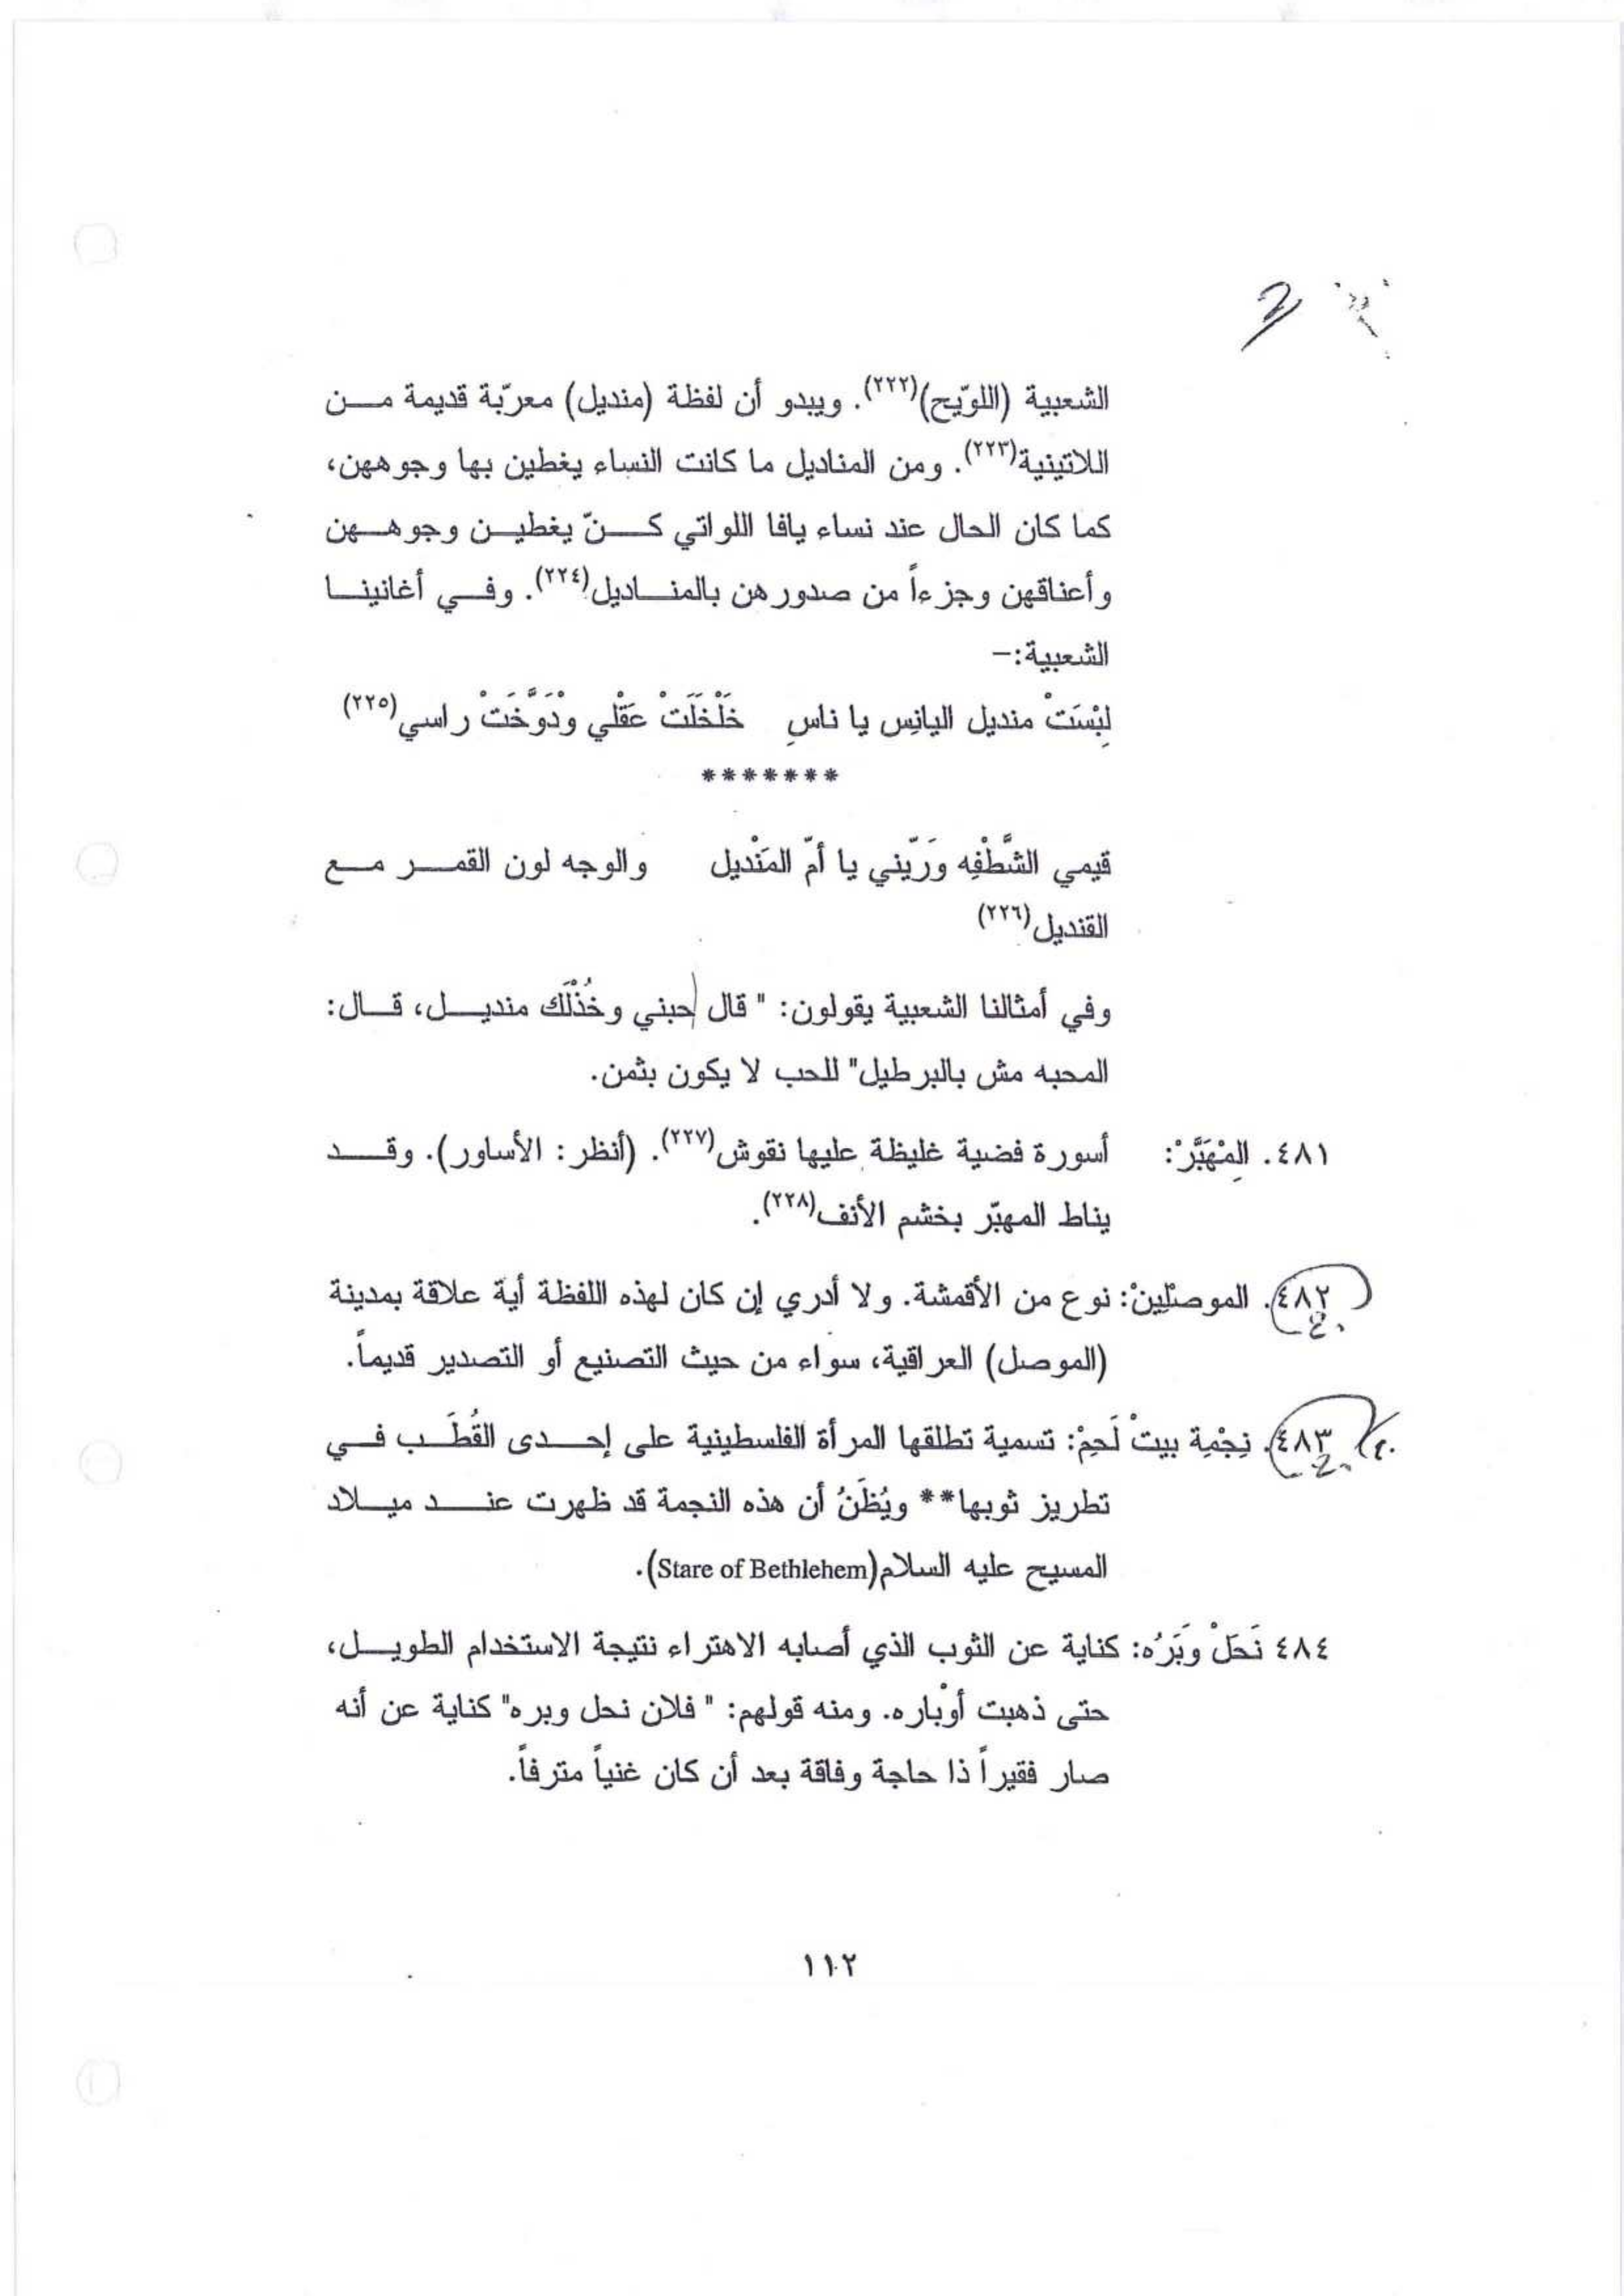 الشعبية (اللوّيح)(٢٢٢). ويبدو أن لفظة (منديل) معرّبة قديمة من
اللاتينية(٢٢٣). ومن المناديل ما كانت النساء يغطين بها وجوههن،
كما كان الحال عند نساء يافا اللواتي كنّ يغطين وجوههن
وأعناقهن وجزءاً من صدورهن بالمناديل(٢٢٤). وفي أغانينا
الشعبية:–
لِبْسَتْ منديل اليانِس يا ناسِ خَلْخَلَتْ عَقْلي ودْوَّخَتْ راسي(٢٢٥)
*******
قيمي الشَّطْفِه ورَيّني يا أمّ المَنْديل والوجه لون القمر مع
القنديل(٢٢٦)
وفي أمثالنا الشعبية يقولون: " قال حبني وخُذْلَك منديل، قال:
المحبه مش بالبرطيل" للحب لا يكون بثمن.
٤٨١. المِْهَبَّرْ: أسورة فضية غليظة عليها نقوش(٢٢٧). (أنظر: الأساور). وقد
يناط المهبّر بخشم الأنف(٢٢٨).
٤٨٢. الموصْلِينْ: نوع من الأقمشة. ولا أدري إن كان لهذه اللفظة أية علاقة بمدينة
(الموصل) العراقية، سواء من حيث التصنيع أو التصدير قديماً.
٤٨٣. نِجْمِة بيتْ لَحِمْ: تسمية تطلقها المرأة الفلسطينية على إحدى القُطَب في
تطريز ثوبها** ويُظَنُ أن هذه النجمة قد ظهرت عند ميلاد
المسيح عليه السلام(Stare of Bethlehem).
٤٨٤ نَحَلْ وَبَرُه: كناية عن الثوب الذي أصابه الاهتراء نتيجة الاستخدام الطويل،
حتى ذهبت أوْباره. ومنه قولهم: " فلان نحل وبره" كناية عن أنه
صار فقيراً ذا حاجة وفاقة بعد أن كان غنياً مترفاً.
١١٢